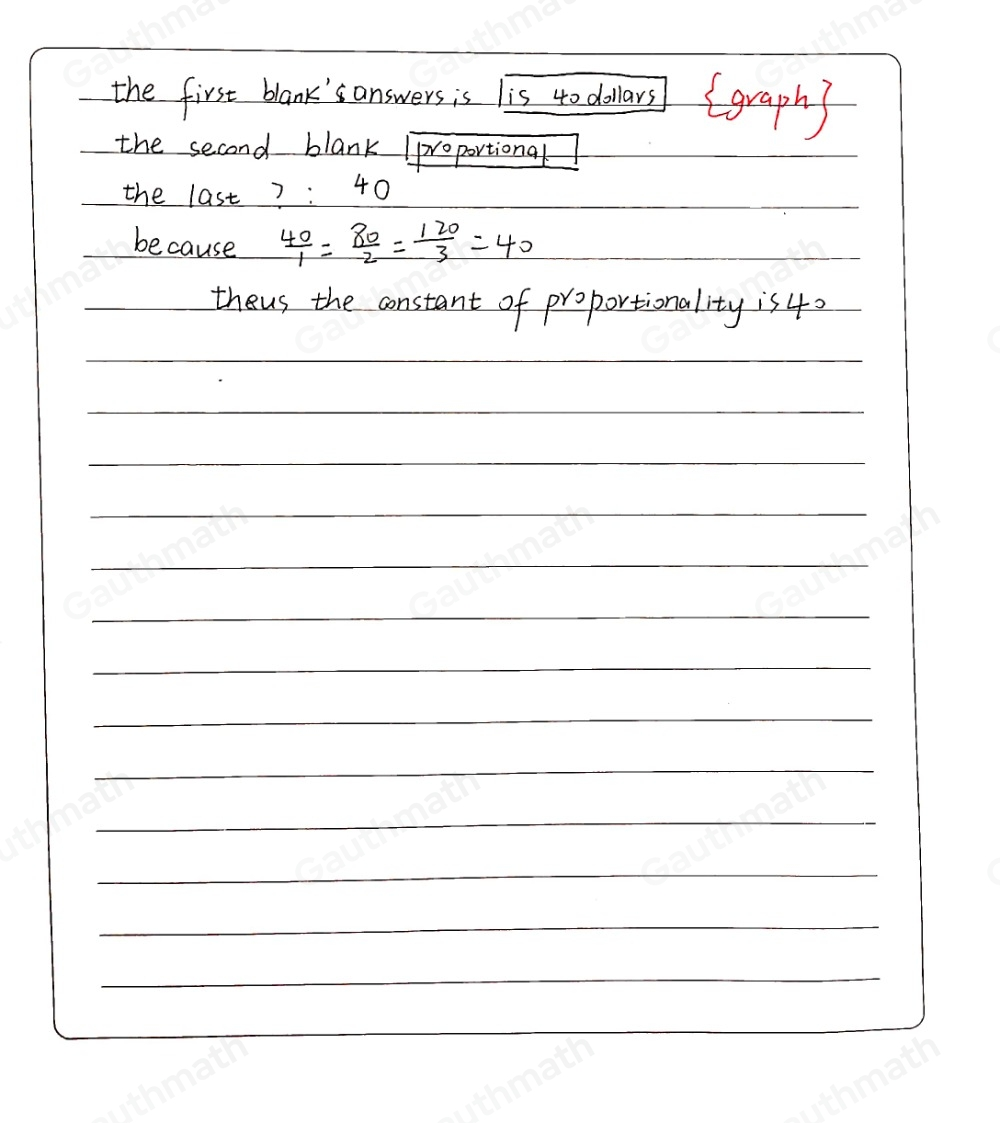 the first blank's answers is is 40 dollars {graph}
the second blank proportional
the last ? : 40
because 40/1 = 80/2 = 120/3 = 40
theus the constant of proportionality is 40
Gauthmath